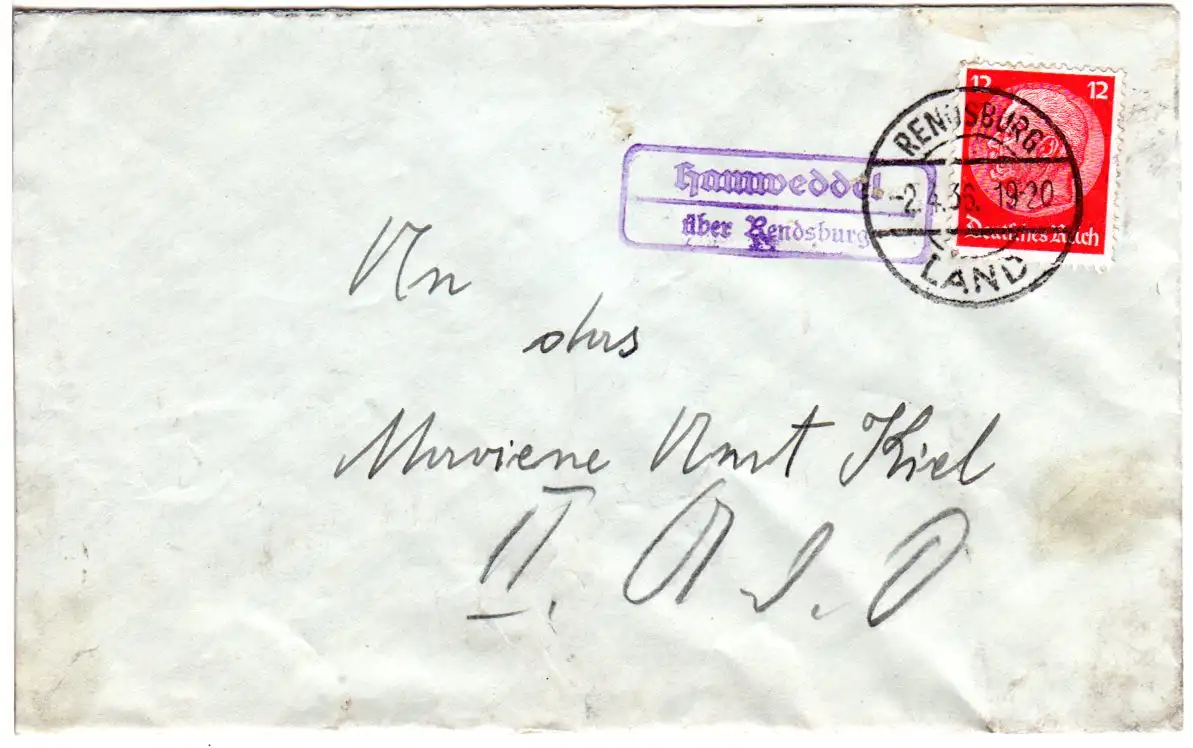 12 12
Deutsches Reich
RENDSBURG
-2.4.36. 19-20
LAND
Hamweddel
über Rendsburg
An
das
Mariene Amt Kiel
II.